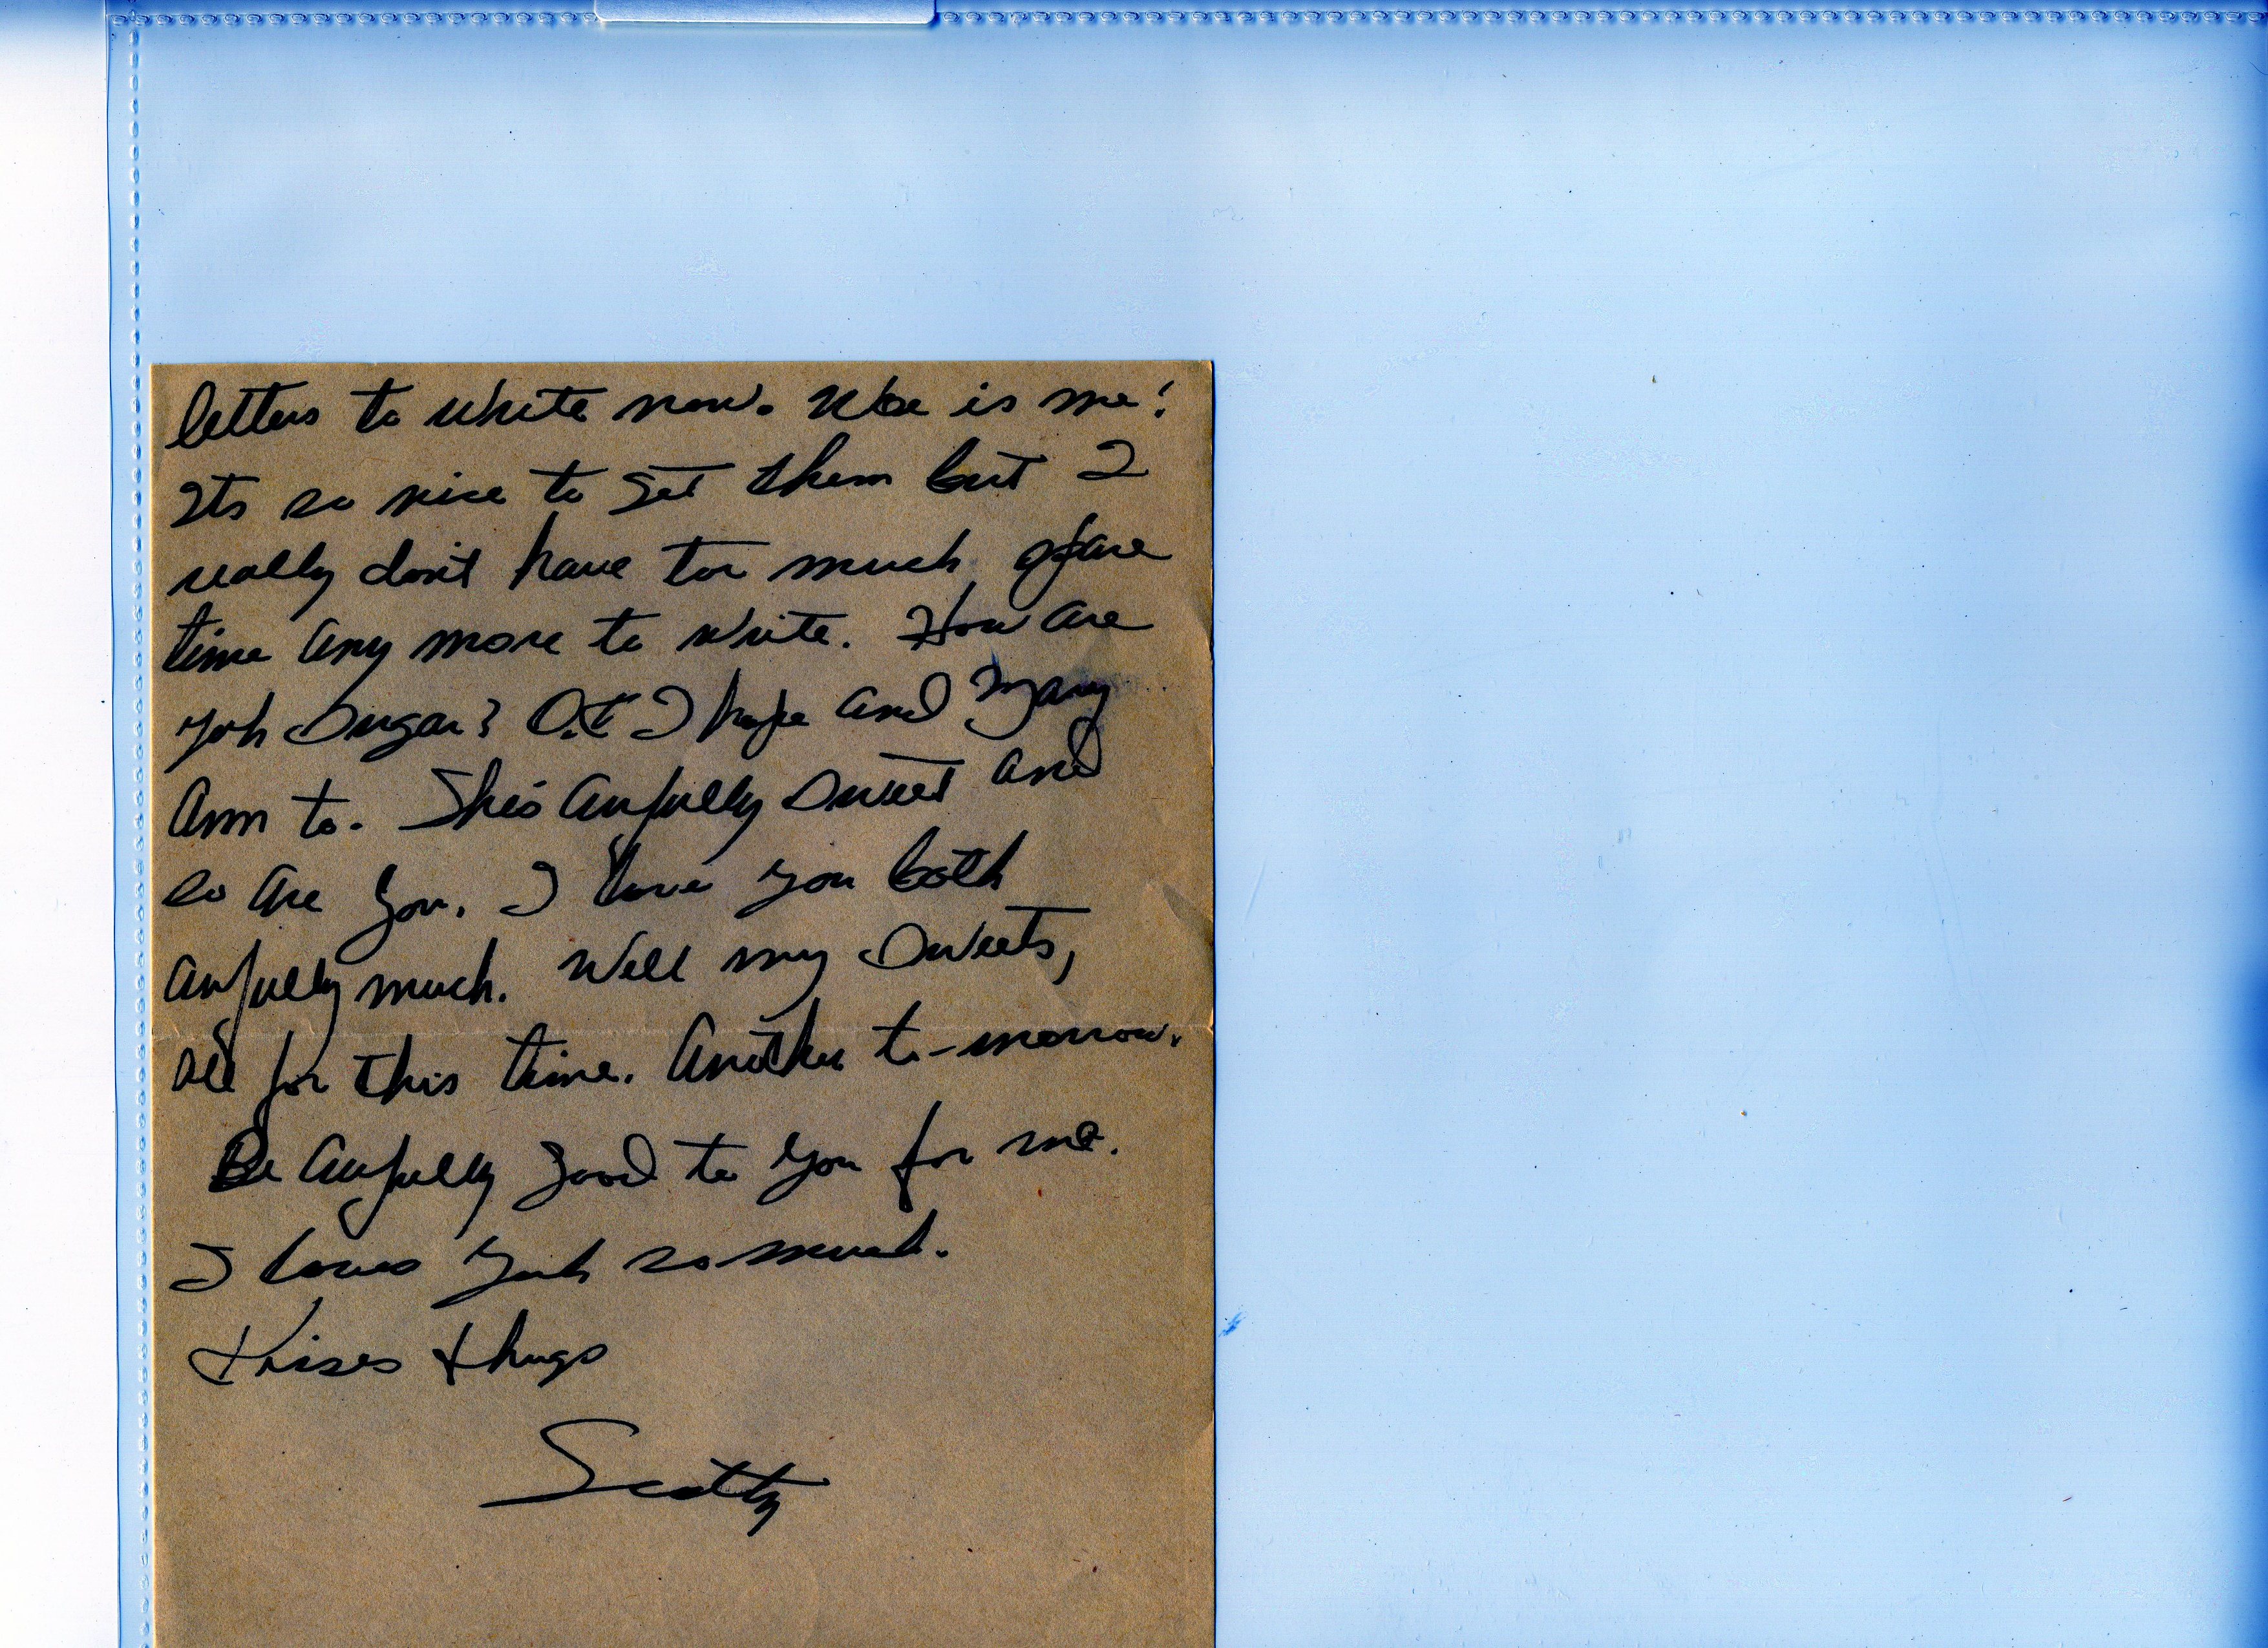 letters to write now. Woe is me!
Its so nice to get them but I
really don't have too much spare
time any more to write. How are
yuh Sugar? O.K I hope and Mary
Ann to. She's awfully sweet and
so are you. I love you both
awfully much. Well my Sweets,
all for this time. Another to-morrow.
Be awfully good to you for me.
I loves yuh so much.
Kisses & hugs
Scotty